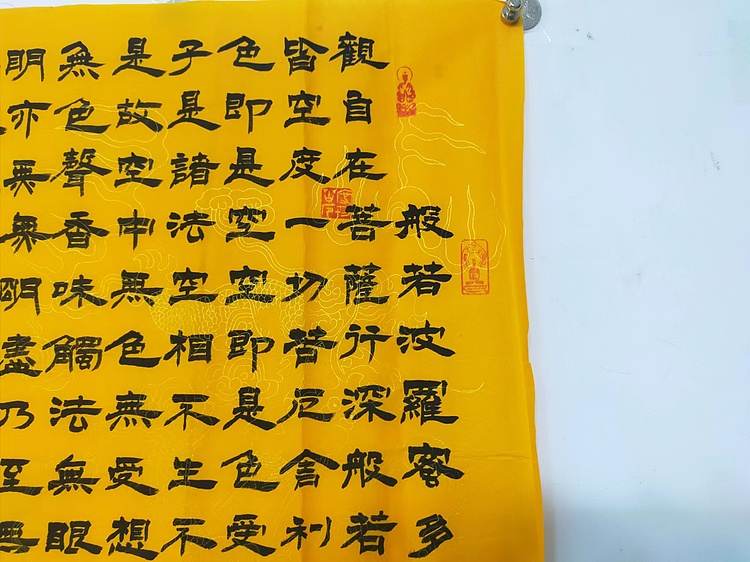 般若波羅蜜多
觀自在菩薩行深般若
皆空度一切苦厄舍利
色即是空空即是色受
子是諸法空相不生不
是故空中無色無受想
無色聲香味觸法無眼
明亦無無明盡乃至無